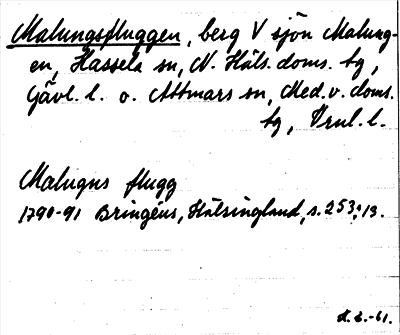 Malungsfluggen, berg V sjön Malung-
en, Hassela sn, N. Häls. doms. bg,
Gävl. l. o. Attmars sn, Med. v. doms.
bg, Vrnl. l.
Malugns flugg
1790-91 Bringéus, Hälsingland, s. 253:13.
-61.